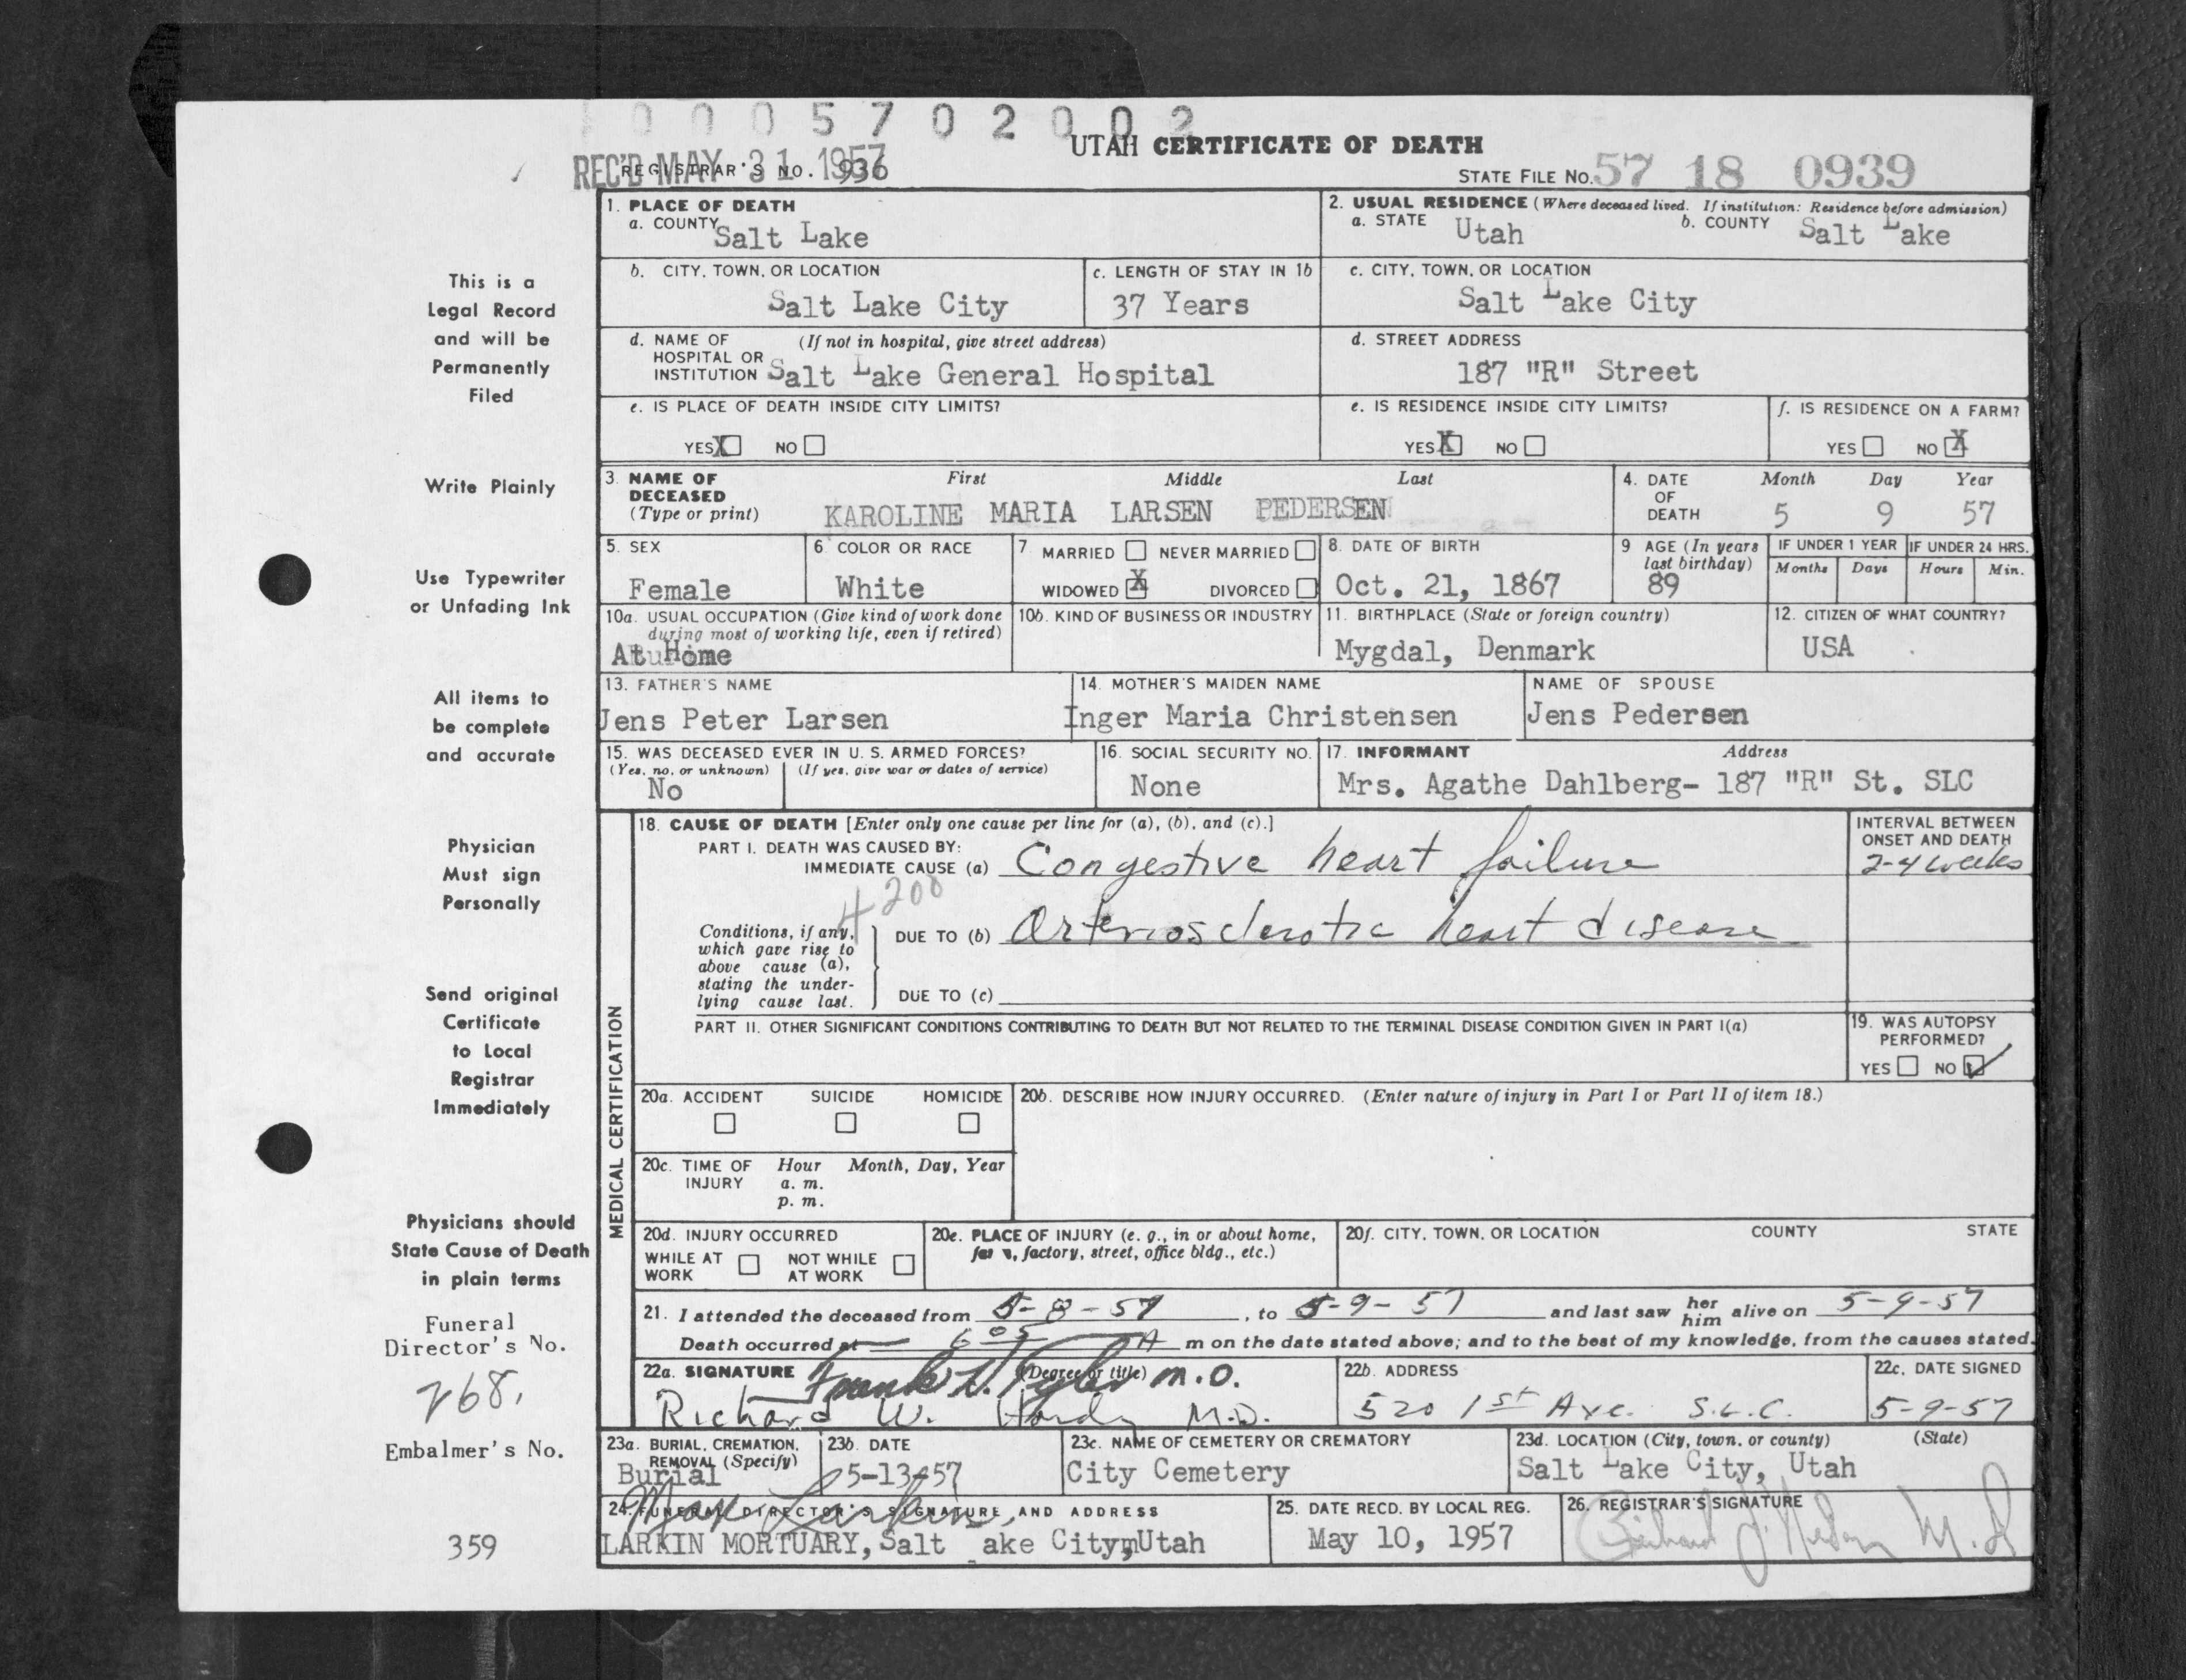 0 0 0 5 7 0 2 0 0 2
UTAH CERTIFICATE OF DEATH
REC'D MAY 31 1957
REGISTRAR'S NO. 936
STATE FILE NO. 57 18 0939
1. PLACE OF DEATH
a. COUNTY Salt Lake
2. USUAL RESIDENCE (Where deceased lived. If institution: Residence before admission)
a. STATE Utah b. COUNTY Salt Lake
b. CITY, TOWN, OR LOCATION Salt Lake City
c. LENGTH OF STAY IN 1b 37 Years
c. CITY, TOWN, OR LOCATION Salt Lake City
d. NAME OF HOSPITAL OR INSTITUTION (If not in hospital, give street address) Salt Lake General Hospital
d. STREET ADDRESS 187 "R" Street
e. IS PLACE OF DEATH INSIDE CITY LIMITS?
YES X NO
e. IS RESIDENCE INSIDE CITY LIMITS?
YES X NO
f. IS RESIDENCE ON A FARM?
YES NO X
3. NAME OF DECEASED (Type or print)
First Middle Last
KAROLINE MARIA LARSEN PEDERSEN
4. DATE OF DEATH
Month Day Year
5 9 57
5. SEX Female
6. COLOR OR RACE White
7. MARRIED NEVER MARRIED
WIDOWED X DIVORCED
8. DATE OF BIRTH Oct. 21, 1867
9 AGE (In years last birthday) 89
IF UNDER 1 YEAR Months Days
IF UNDER 24 HRS. Hours Min.
10a. USUAL OCCUPATION (Give kind of work done during most of working life, even if retired)
At Home
10b. KIND OF BUSINESS OR INDUSTRY
11. BIRTHPLACE (State or foreign country)
Mygdal, Denmark
12. CITIZEN OF WHAT COUNTRY?
USA
13. FATHER'S NAME
Jens Peter Larsen
14. MOTHER'S MAIDEN NAME
Inger Maria Christensen
NAME OF SPOUSE
Jens Pedersen
15. WAS DECEASED EVER IN U. S. ARMED FORCES?
(Yes, no, or unknown) (If yes, give war or dates of service)
No
16. SOCIAL SECURITY NO.
None
17. INFORMANT Address
Mrs. Agathe Dahlberg- 187 "R" St. SLC
MEDICAL CERTIFICATION
18. CAUSE OF DEATH [Enter only one cause per line for (a), (b), and (c).]
PART I. DEATH WAS CAUSED BY:
IMMEDIATE CAUSE (a) Congestive heart failure
INTERVAL BETWEEN ONSET AND DEATH
2-4 weeks
4200
Conditions, if any, which gave rise to above cause (a), stating the underlying cause last.
DUE TO (b) Arteriosclerotic heart disease
DUE TO (c)
PART II. OTHER SIGNIFICANT CONDITIONS CONTRIBUTING TO DEATH BUT NOT RELATED TO THE TERMINAL DISEASE CONDITION GIVEN IN PART I(a)
19. WAS AUTOPSY PERFORMED?
YES NO ✓
20a. ACCIDENT SUICIDE HOMICIDE
20b. DESCRIBE HOW INJURY OCCURRED. (Enter nature of injury in Part I or Part II of item 18.)
20c. TIME OF INJURY Hour Month, Day, Year
a. m.
p. m.
20d. INJURY OCCURRED
WHILE AT WORK NOT WHILE AT WORK
20e. PLACE OF INJURY (e. g., in or about home, farm, factory, street, office bldg., etc.)
20f. CITY, TOWN, OR LOCATION COUNTY STATE
21. I attended the deceased from 5-8-57, to 5-9-57 and last saw her him alive on 5-9-57
Death occurred at 6 05 A m on the date stated above; and to the best of my knowledge, from the causes stated.
22a. SIGNATURE (Degree or title)
Frank L. Tyler M.D.
Richard W. Hardy M.D.
22b. ADDRESS
520 1st Ave. S.L.C.
22c. DATE SIGNED
5-9-57
23a. BURIAL, CREMATION, REMOVAL (Specify)
Burial
23b. DATE
5-13-57
23c. NAME OF CEMETERY OR CREMATORY
City Cemetery
23d. LOCATION (City, town, or county) (State)
Salt Lake City, Utah
24. FUNERAL DIRECTOR'S SIGNATURE AND ADDRESS
Max Larkin
LARKIN MORTUARY, Salt ake City, Utah
25. DATE RECD. BY LOCAL REG.
May 10, 1957
26. REGISTRAR'S SIGNATURE
M.D.
This is a
Legal Record
and will be
Permanently
Filed
Write Plainly
Use Typewriter
or Unfading Ink
All items to
be complete
and accurate
Physician
Must sign
Personally
Send original
Certificate
to Local
Registrar
Immediately
Physicians should
State Cause of Death
in plain terms
Funeral
Director's No.
268.
Embalmer's No.
359